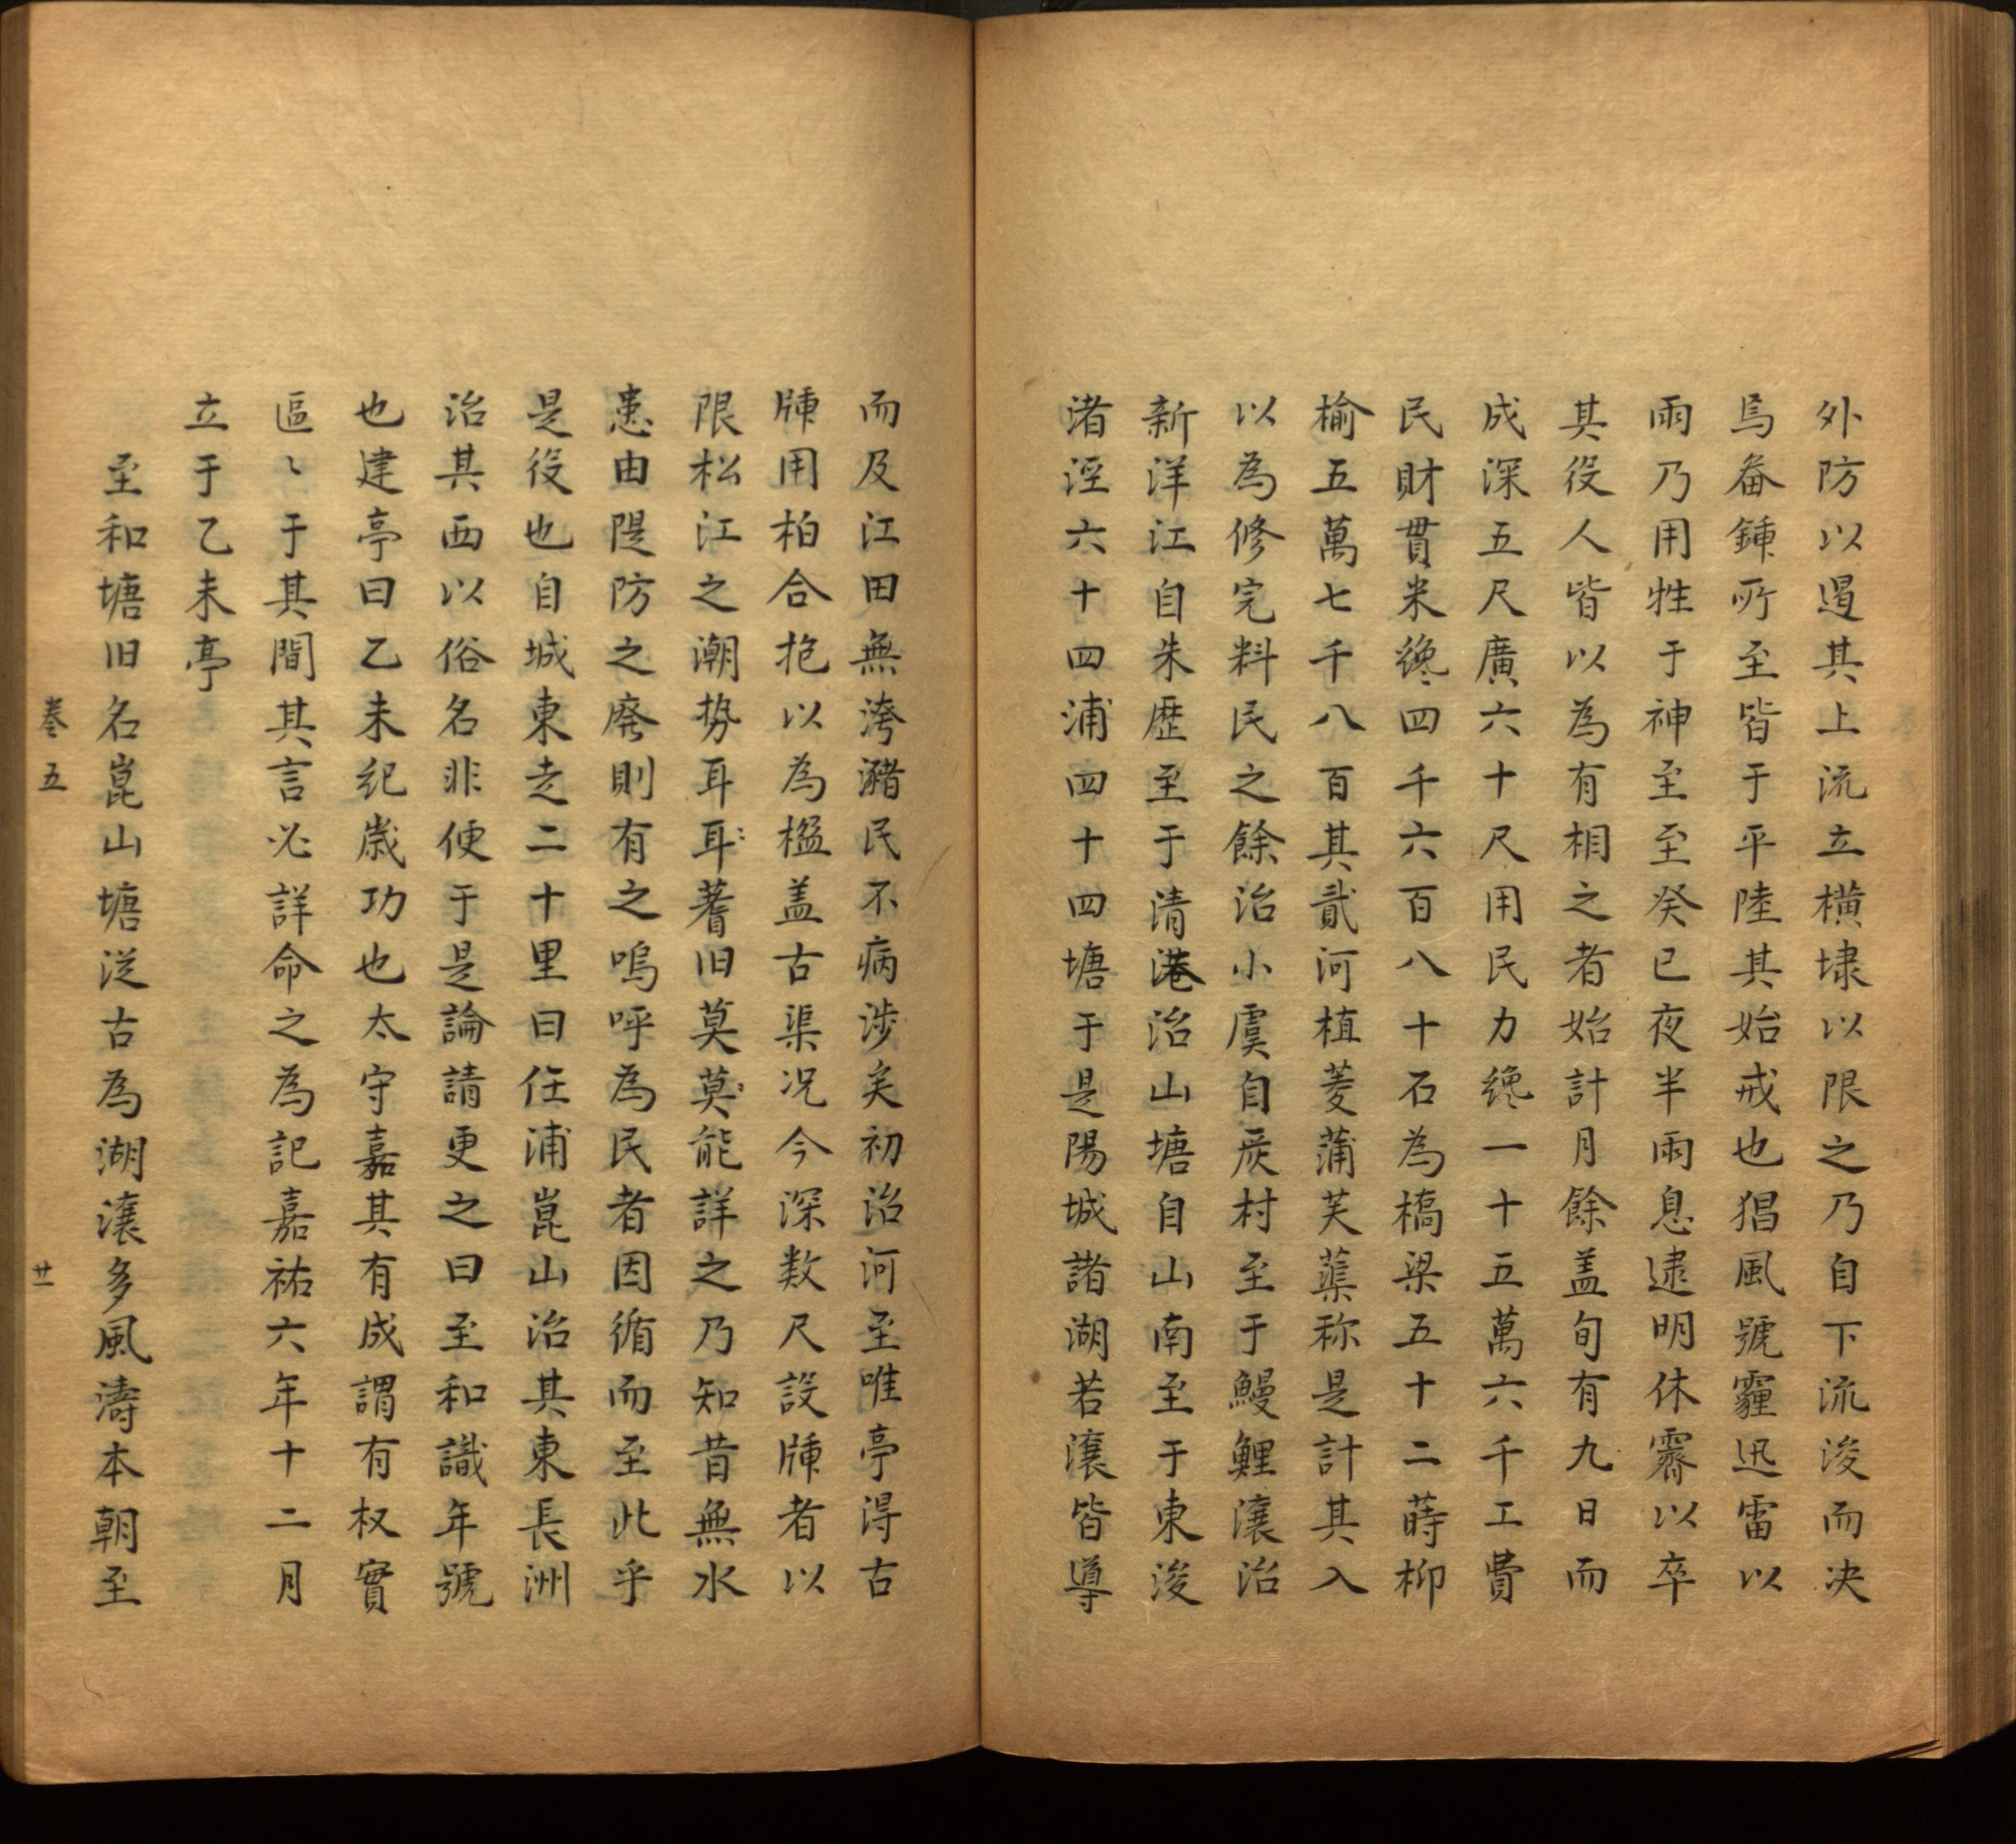 外防以遏其上流立橫埭以限之乃自下流浚而决
焉畚鍤所至皆于平陸其始戒也猖風號霾迅雷以
雨乃用牲于神至至癸已夜半雨息逮明休霽以卒
其役人皆以為有相之者始計月餘盖旬有九日而
成深五尺廣六十尺用民力纔一十五萬六千工費
民財貫米纔四千六百八十石為橋梁五十二蒔柳
榆五萬七千八百其貳河植菱蒲芙蕖称是計其入
以為修完料民之餘治小虞自戻村至于鰻鯉瀼治
新洋江自朱歴至于清港治山塘自山南至于東浚
渚涇六十四浦四十四塘于是陽城諸湖若瀼皆導
而及江田無洿瀦民不病涉矣初治河至唯亭得古
牐用柏合抱以為楹盖古渠况今深数尺設牐者以
限松江之潮势耳耳耆旧莫莫能詳之乃知昔無水
患由隄防之廃則有之嗚呼為民者因循而至此乎
是役也自城東走二十里曰任浦崑山治其東長洲
治其西以俗名非便于是論請更之曰至和識年號
也建亭曰乙未紀歳功也太守嘉其有成謂有权實
區〻于其間其言必詳命之為記嘉祐六年十二月
立于乙未亭
至和塘旧名崑山塘従古為湖瀼多風濤本朝至
卷五 廿一